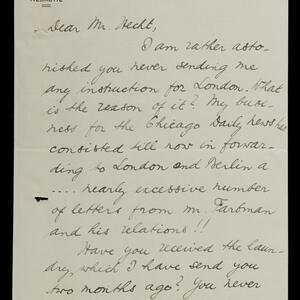 Dear Mr. Hecht,
I am rather asto-
nished you never sending me
any instruction for London. What
is the reason of it? My busi-
ness for the Chicago Daily News has
consisted till now in forwar-
ding to London and Berlin a
.... nearly excessive number
of letters from Mr. Farbman
and his relations!!
Have you received the laun-
dry, which I have send you
two months ago? You never